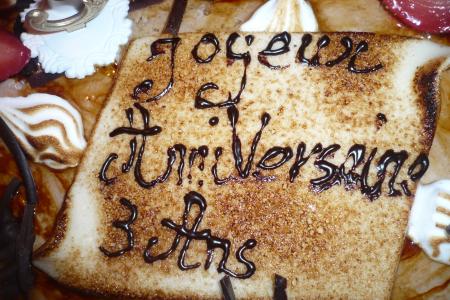 Joyeux
Anniversaire
3 Ans